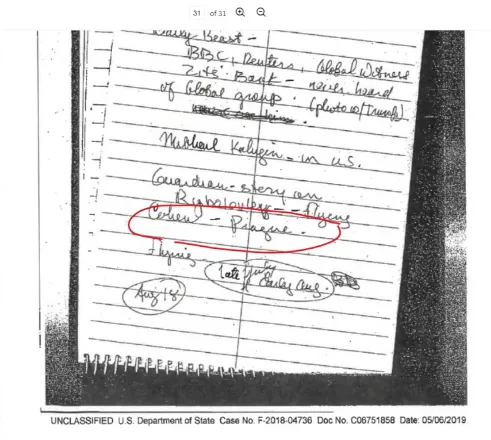 31 of 31
Daily Beast -
BBC, Reuters, Global Witness
Bank - never heard
of Global group. (photo w/Trump)
Mikhail Kalugin - in U.S.
Guardian - story on
Rybolovlev - flying
Cohen - Prague.
Flying
late July
early Aug.
Aug 18
UNCLASSIFIED U.S. Department of State Case No. F-2018-04736 Doc No. C06751858 Date: 05/06/2019